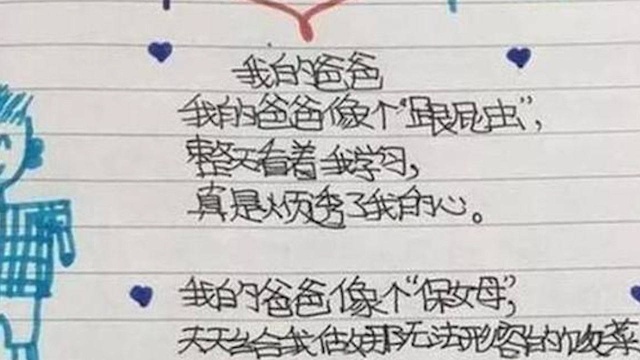 我的爸爸
我的爸爸像个“跟屁虫”,
整天看着我学习,
真是烦透了我的心。
我的爸爸像个“保女母”,
天天给我做那无法形容的饭菜